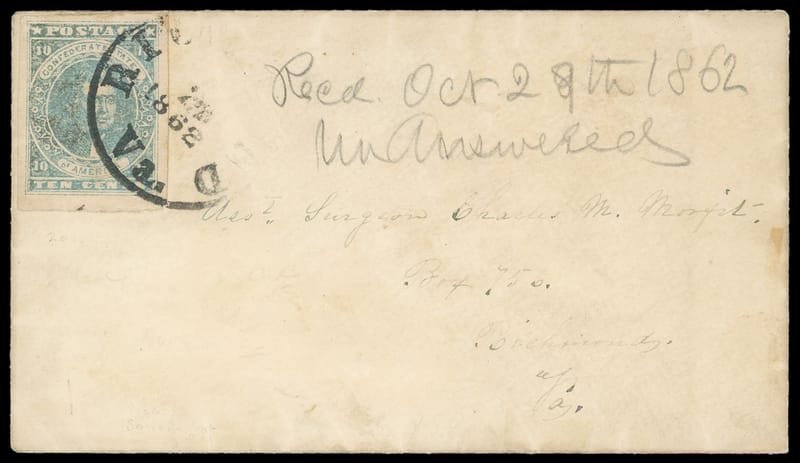 POSTAGE
10 10
CONFEDERATE STATES
OF AMERICA
10 10
TEN CENTS
1862
Va.
D
Recd. Oct 28th 1862
UnAnswered
Asst. Surgeon Charles M. Morfit.
Box 750.
Richmond,
Va.